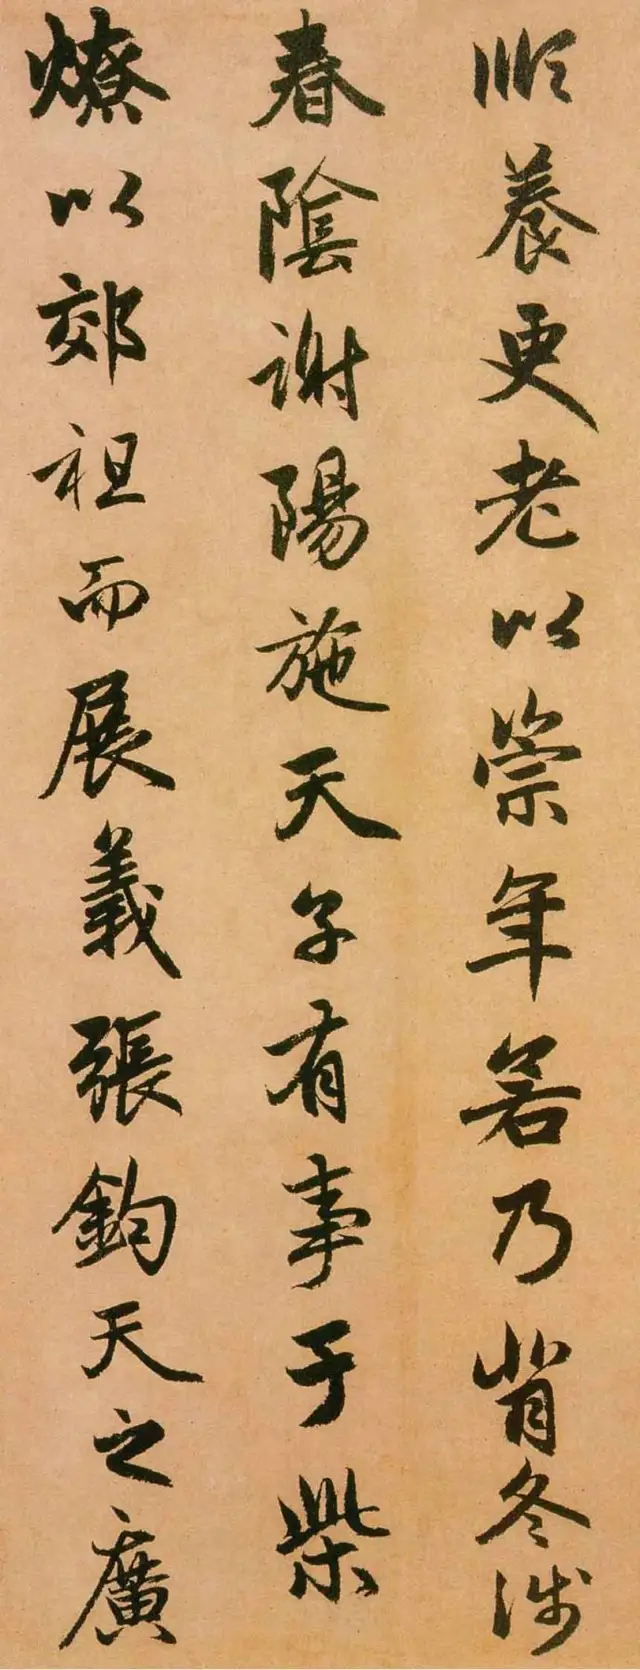 順養更老以崇年若乃背冬涉
春陰謝陽施天子有事于柴
燎以郊祖而展義張鈞天之廣